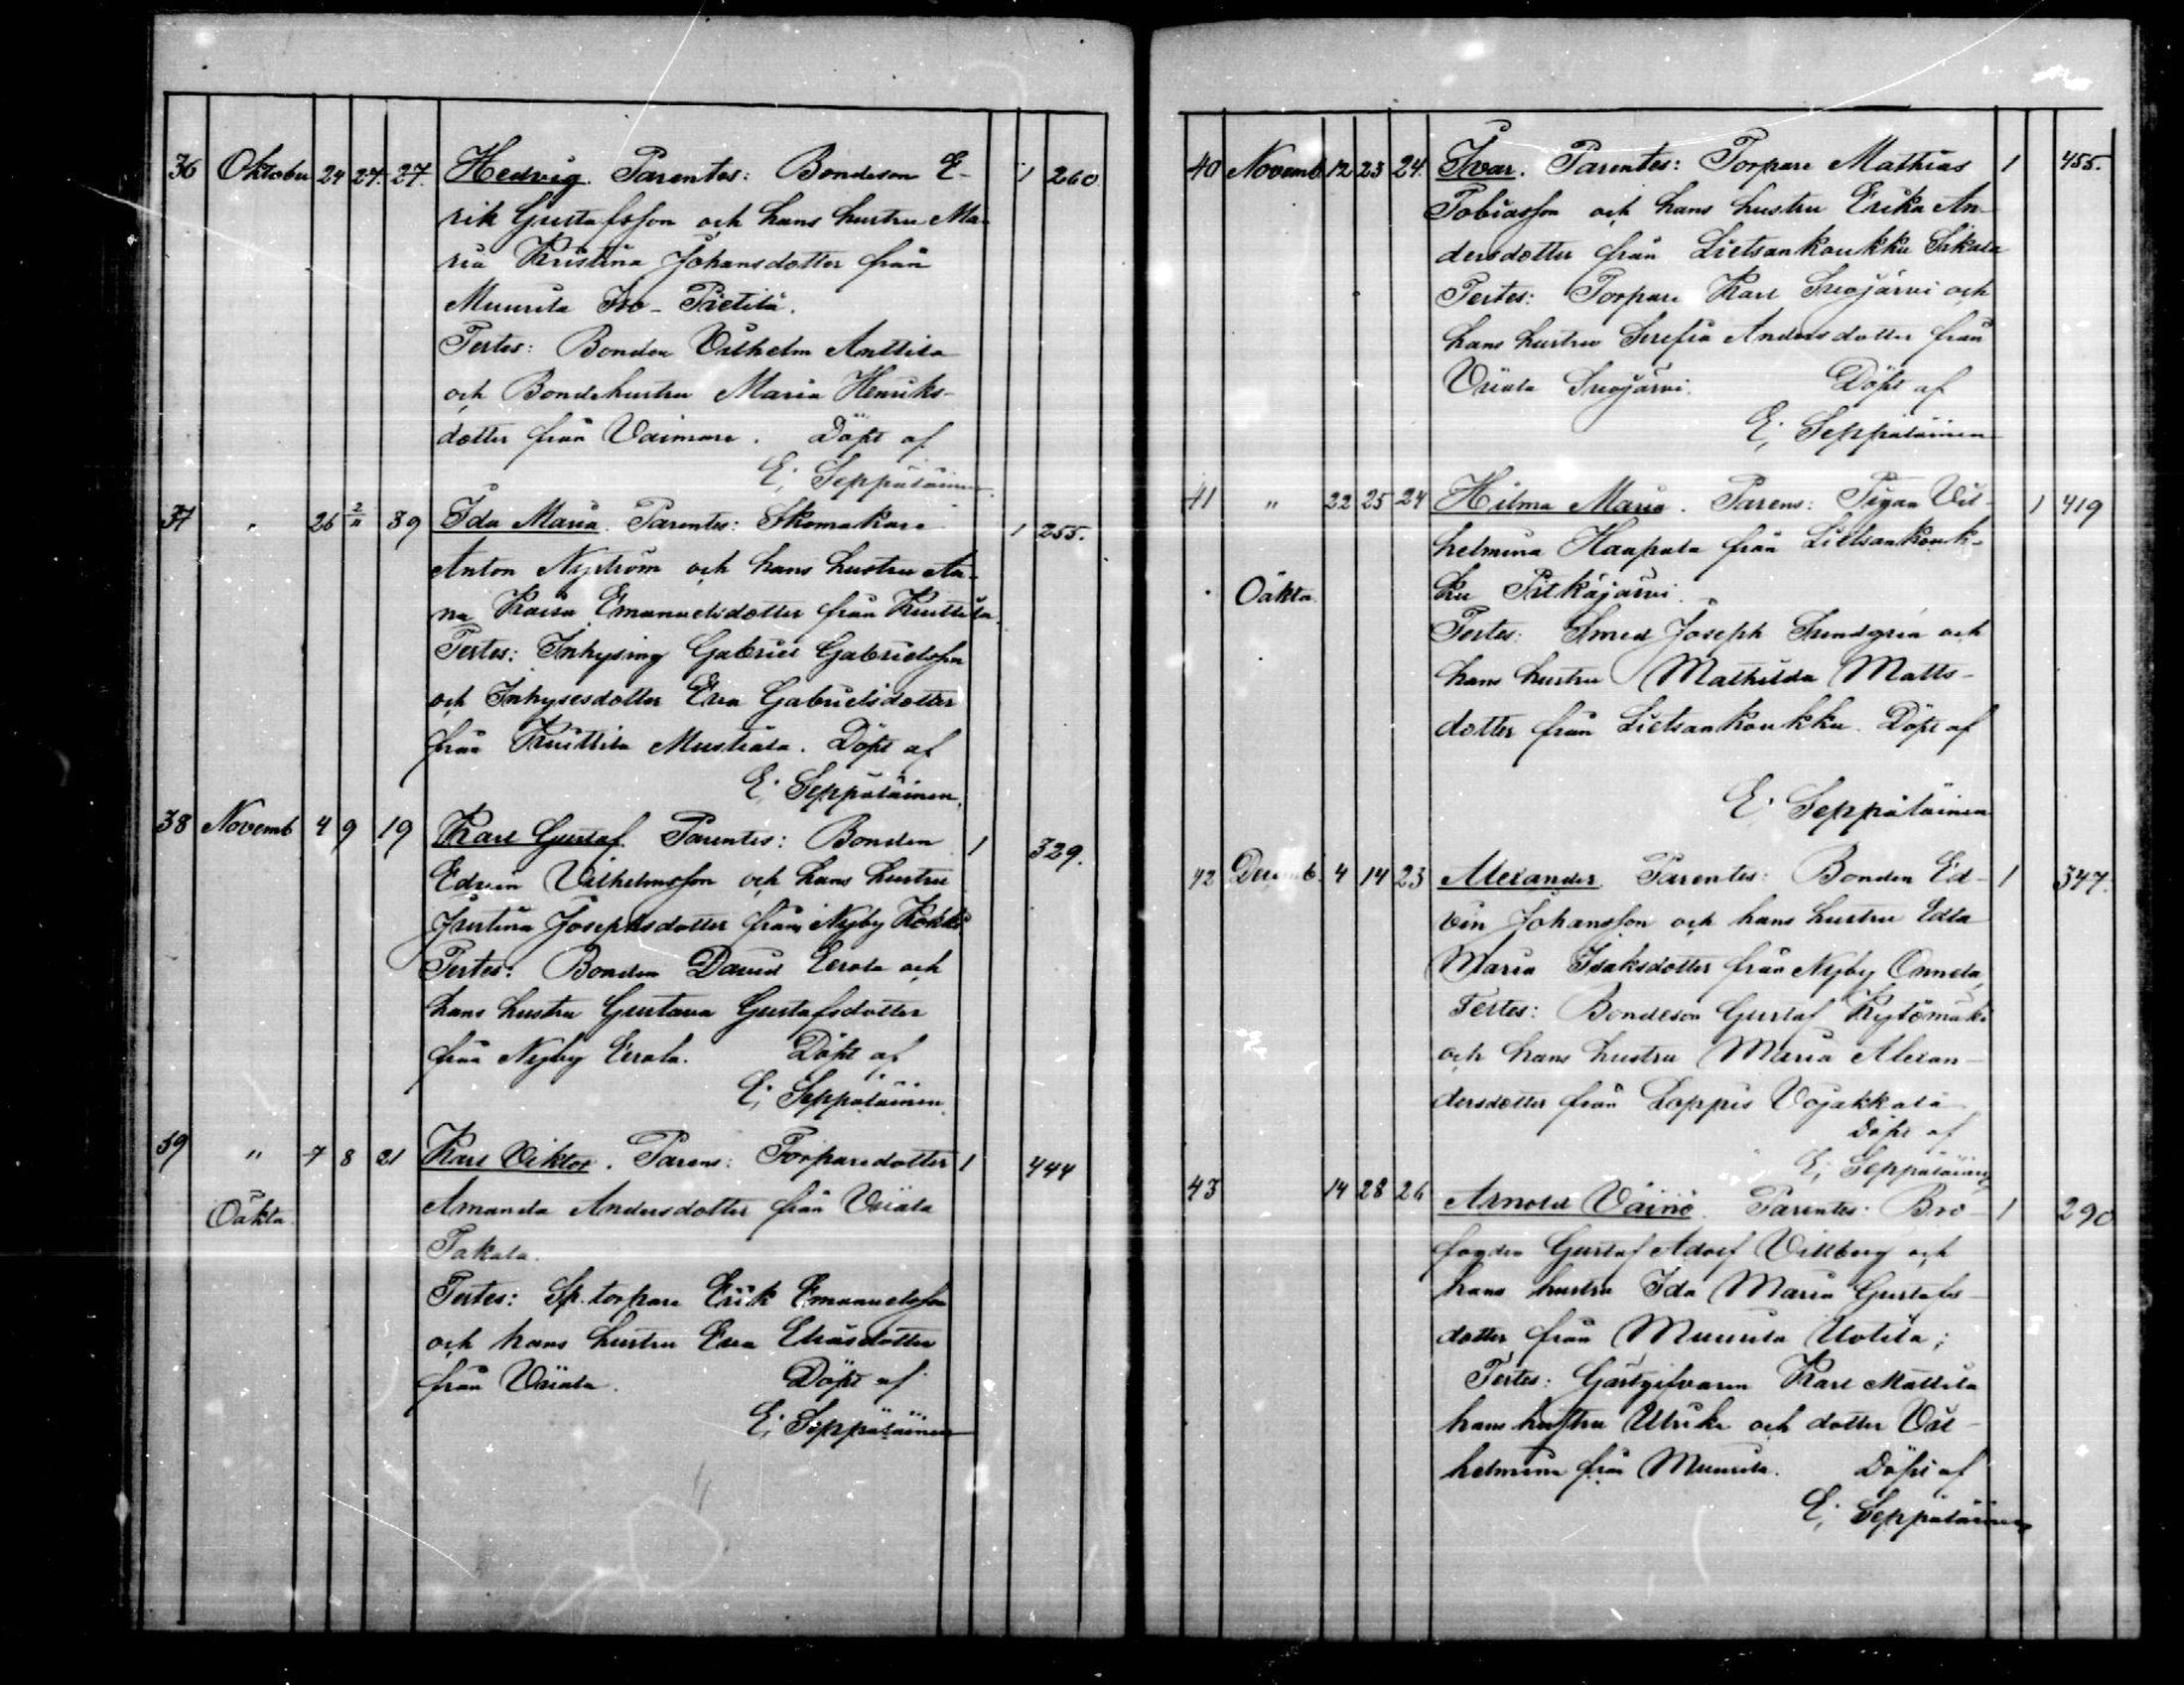 36 Oktober 24 27. 27. Hedvig. Parentes: Bondeson E- 1 260
rik Gustafsson och hans hustru Ma-
ria Kristina Johansdotter från
Muurila Iso-Pietilä.
Testes: Bonden Vilhelm Anttila
och Bondehustru Maria Henriks-
dotter från Vaimare. Döpt af
E. Seppäläinen.
37 " 26 2/11 39 Ida Maria. Parentes: Skomakare 1 255.
Anton Nyström och hans hustru An-
na Kaisa Emanuelsdotter från Kruttila.
Testes: Inhysing Gabriel Gabrielsson
och Inhysesdotter Eva Gabrielsdotter
från Kruttila Mustiala. Döpt af
E. Seppäläinen.
38 Novemb 4 9 19 Karl Gustaf. Parentes: Bonden 1 329.
Edvin Vilhelmsson och hans hustru
Justina Josephsdotter från Nyby Kokki
Testes: Bonden David Eerola och
hans hustru Gustava Gustafsdotter
från Nyby Eerola. Döpt af
E. Seppäläinen.
39 " 7 8 21 Karl Viktor. Parens: Torparedotter 1 444
Oäkta. Amanda Andersdotter från Vriala
Takala.
Testes: Sp. torpare Erik Emanuelsson
och hans hustru Eva Eliasdotter
från Vriala. Döpt af
E. Seppäläinen
40 Novemb. 12 23 24. Ivar. Parentes: Torpare Mathias 1 455.
Tobiasson och hans hustru Erika An-
dersdotter från Lietsankoukku
Testes: Torpare Karl Suojärvi och
hans hustru Serefia Andersdotter från
Vriala Suojärvi. Döpt af
E. Seppäläinen
41 " 22 25 24 Hilma Maria. Parens: Pigan Vil- 1 419
helmina Haapala från Lietsankouk-
Oäkta. ku Pitkäjärvi.
Testes: Smed Joseph Sundgren och
hans hustru Mathilda Matts-
dotter från Lietsankoukku. Döpt af
E. Seppäläinen
42 Decemb. 4 14 23 Alexander. Parentes: Bonden Ed- 1 347.
vin Johansson och hans hustru Edla
Maria Isaksdotter från Nyby Onnela,
Testes: Bondeson Gustaf Kytömäki
och hans hustru Maria Alexan-
dersdotter från Loppis Vojakkala
Döpt af
E. Seppäläinen
43 14 28 26 Arnold Väinö. Parentes: Bro- 1 290
fogden Gustaf Adolf Villberg och
hans hustru Ida Maria Gustafs-
dotter från Muurila Uotila;
Testes: Gästgifvaren Karl Mattila
hans hustru Ulrika och dotter Vil-
helmina från Muurila. Döpt af
E. Seppäläinen